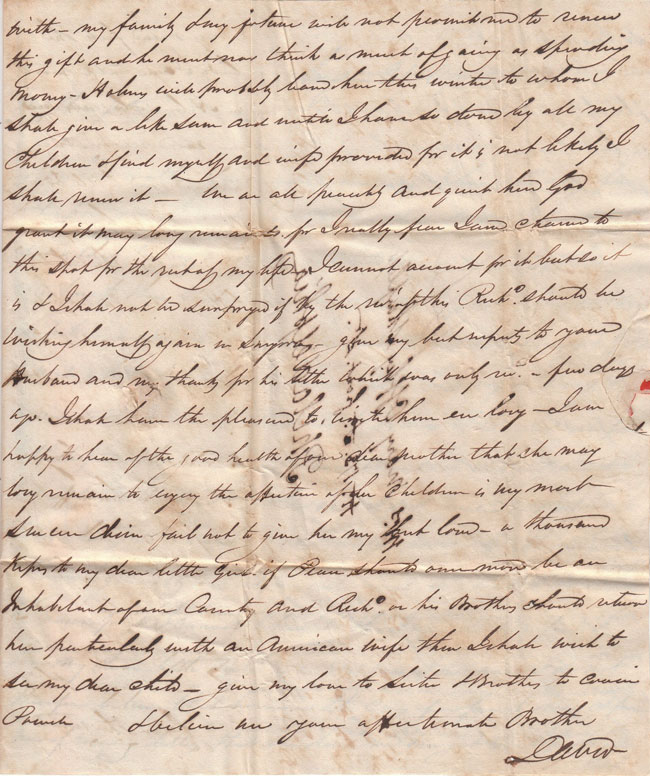 with – my family & my fortune will not permit me to renew
this gift and he must now think as much of gaining as spending
money – will probably hand her this winter to whom I
shall give a like sum and until I have so done by all my
Children & find myself and wife provided for it is not likely I
shall renew it – We are all peaceably and quiet here God
grant it may long remain so, for I really fear I am chained to
this spot for the rest of my life, I cannot account for it but so it
is & I shall not be surprized if by the rect. of this Richd. should be
wishing himself again in – give my best respects to your
Husband and my thanks for his letter which was only recd. a few days
ago. I shall have the pleasure to write him ere long – I am
happy to hear of the good health of our dear mother that she may
long remain to enjoy the affection of her Children is my most
sincere desire fail not to give her my best love – a thousand
Kisses to my dear little Girl. if Peace should once more be an
Inhabitant of our Country and Richd. or his Brother should return
here particularly with an American wife then I shall wish to
see my dear child – give my love to Sister & Brother to cousin
& believe me your affectionate Brother
David